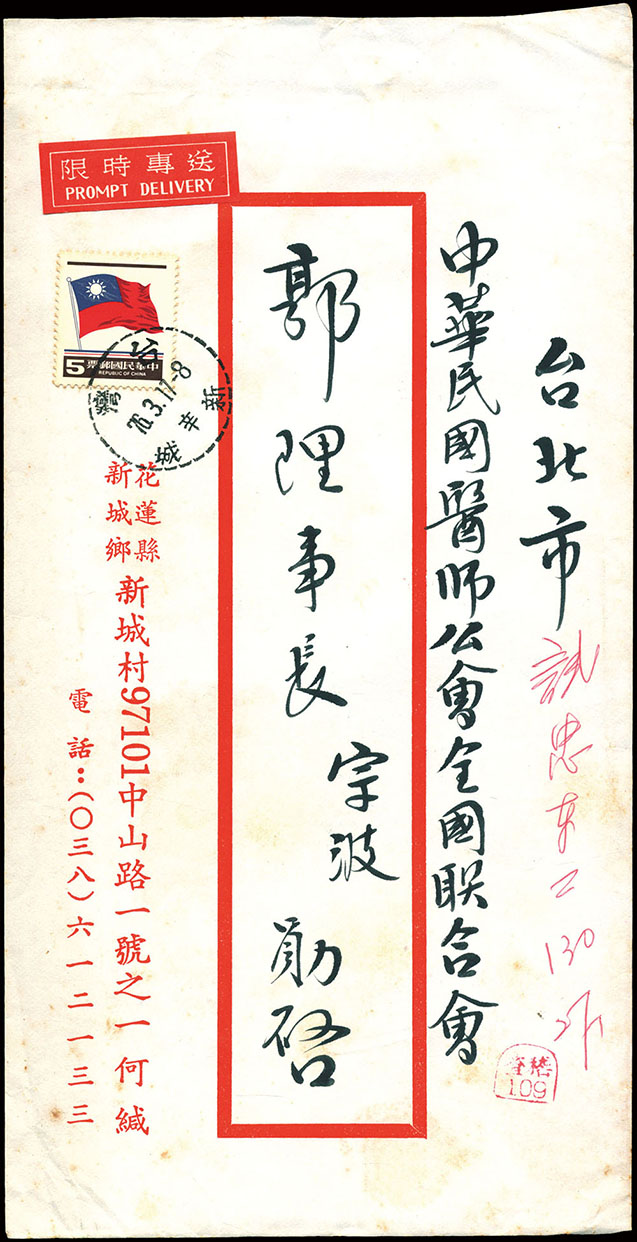 限時專送
PROMPT DELIVERY
中華民國郵票
5
REPUBLIC OF CHINA
台灣
76.3.17-8
新城
台北市
忠東
130
稽查
109
中華民國醫師公會全國聯合會
郭理事長宗波勛啓
花蓮縣
新城鄉
新城村97101中山路一號之一何緘
電話：(〇三八)六一二一三三